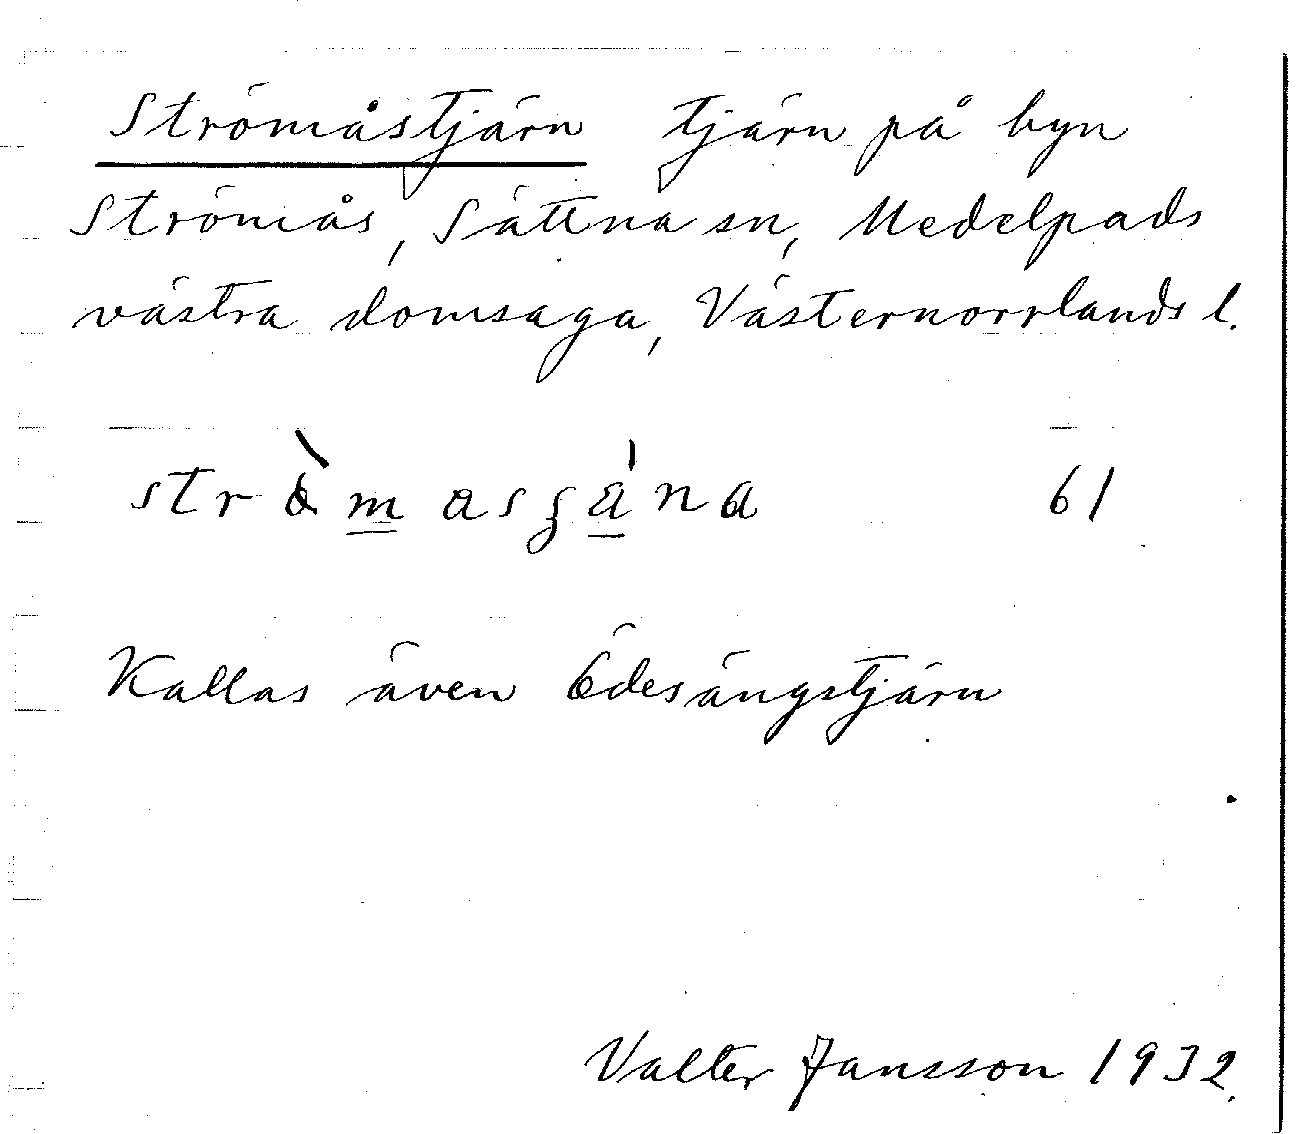 Strömåstjärn tjärn på byn
Strömås, Sättna sn, Medelpads
västra domsaga, Västernorrlands l.
61
Kallas även Ödesängstjärn
Valter Jansson 1932.